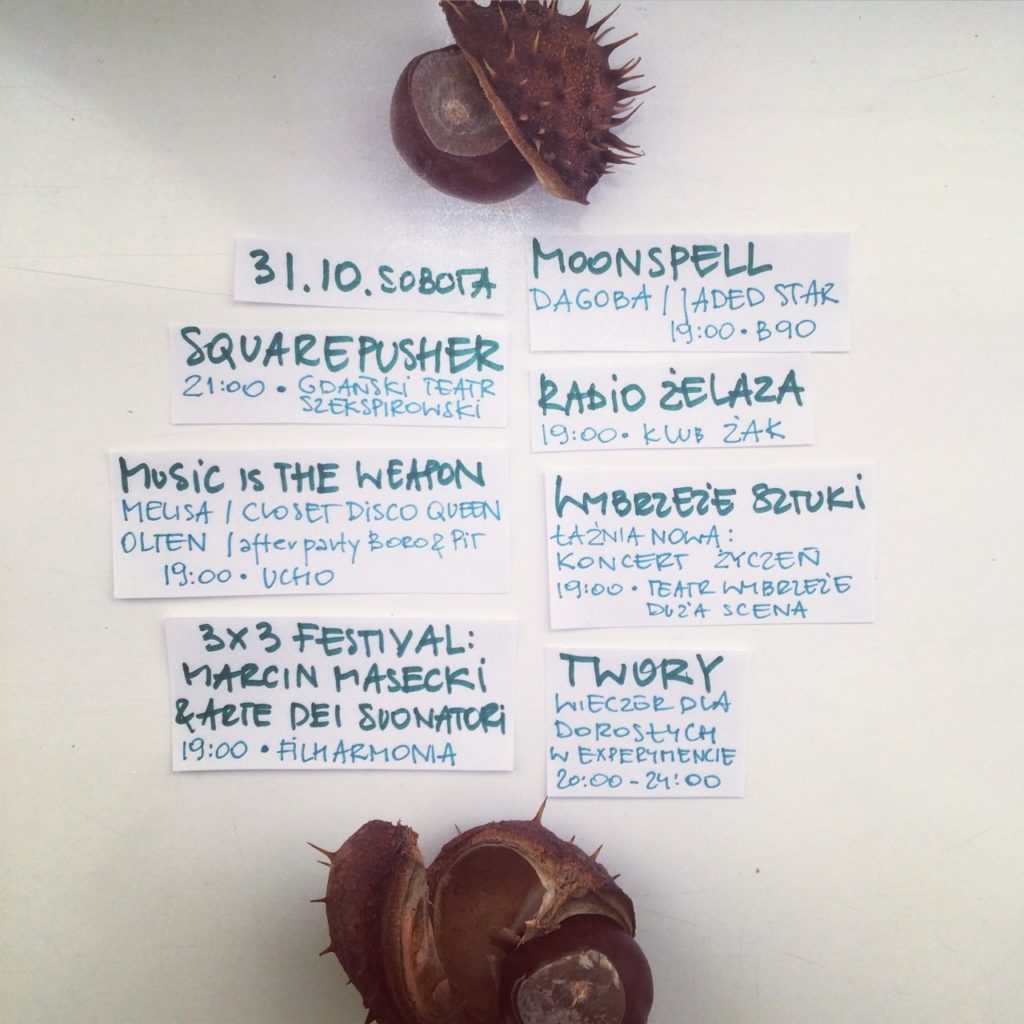 31.10. SOBOTA
SQUAREPUSHER
21:00 • GDAŃSKI TEATR
SZEKSPIROWSKI
MUSIC IS THE WEAPON
MELISA / CLOSET DISCO QUEEN
OLTEN / afterparty BORO & PIT
19:00 • UCHO
3x3 FESTIVAL:
MARCIN MASECKI
& ARTE DEI SUONATORI
19:00 • FILHARMONIA
MOONSPELL
DAGOBA / JADED STAR
19:00 • B90
RADIO ŻELAZA
19:00 • KLUB ŻAK
WYBRZEŻE SZTUKI
ŁAŹNIA NOWA:
KONCERT ŻYCZEŃ
19:00 • TEATR WYBRZEŻE
DUŻA SCENA
TWORY
WIECZÓR DLA
DOROSŁYCH
W EXPERYMENCIE
20:00 - 24:00